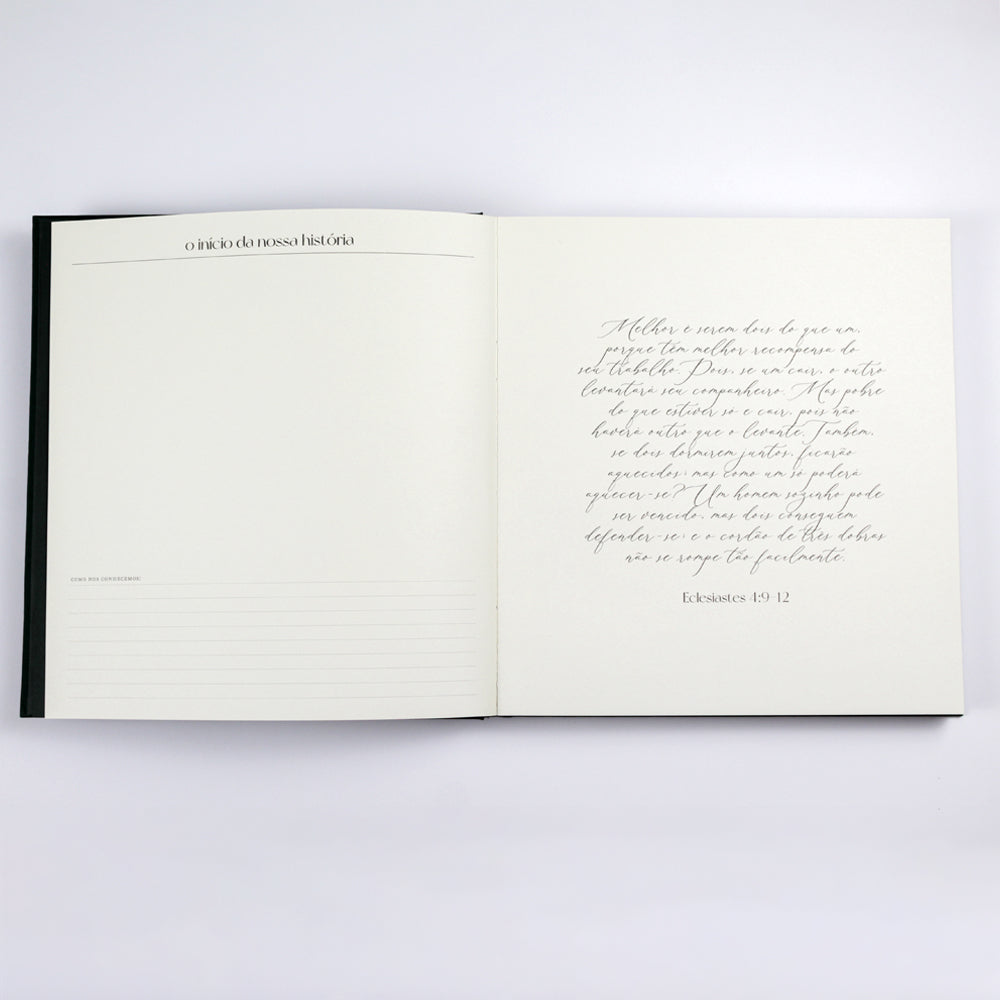 o início da nossa história
COMO NOS CONHECEMOS:
Melhor e serem dois do que um,
porque têm melhor recompensa do
seu trabalho. Pois, se um cair, o outro
levantará seu companheiro. Mas pobre
do que estiver só e cair, pois não
haverá outro que o levante. Também,
se dois dormirem juntos, ficarão
aquecidos; mas como um só poderá
aquecer-se? Um homem sozinho pode
ser vencido, mas dois conseguem
defender-se; e o cordão de três dobras
não se rompe tão facilmente.
Eclesiastes 4:9-12